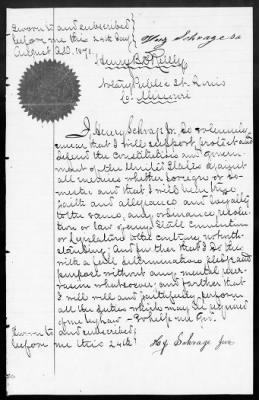 Sworn to and subscribed
before me this 24th day
August A.D. 1871
Hry Schrage Sr
Henry
Notary Public St. Louis
Co. Missouri
I, Henry Schrage Jr. do solemnly
swear that I will support, protect and
defend the Constitution and Govern-
ment of the United States against
all enemies whether foreign or do-
mestic and that I will bear true
faith and allegiance and loyalty
to the same, any ordinance resolu-
tion or law of any State Convention
or Legislature to the contrary notwith-
standing; and further that I do this
with a full determination pledge and
purpose without any mental reser-
vation whatsoever, and further that
I will well and faithfully perform
all the duties which may be required
of me by law. So help me God.
Sworn to and subscribed
before me this 24th
Hy Schrage Jun